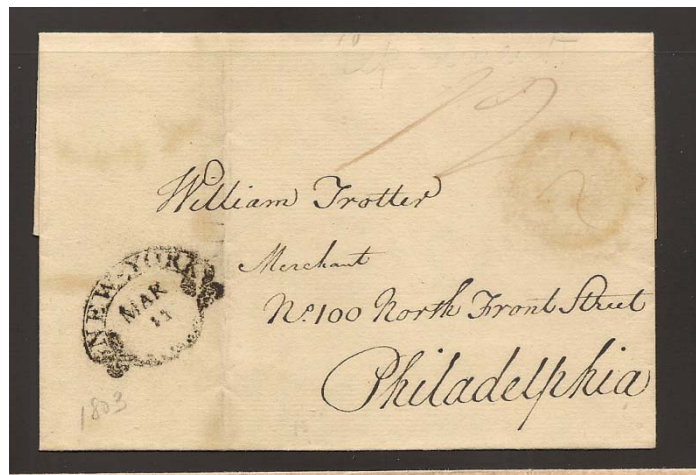 William Trotter
Merchant
No. 100 North Front Street
Philadelphia
NEW-YORK
MAR
1803